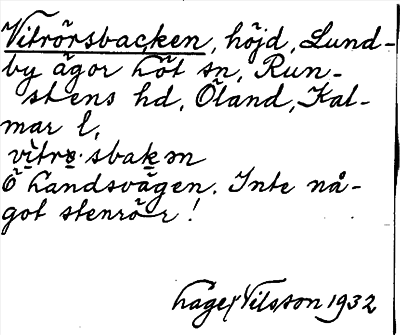 Vitrörsbacken, höjd, Lund-
by ägor Löt sn, Run-
stens hd, Öland, Kal-
mar l,
vitrøꞏsbakɘn
Ö landsvägen. Inte nå-
got stenrör!
Nilsson 1932